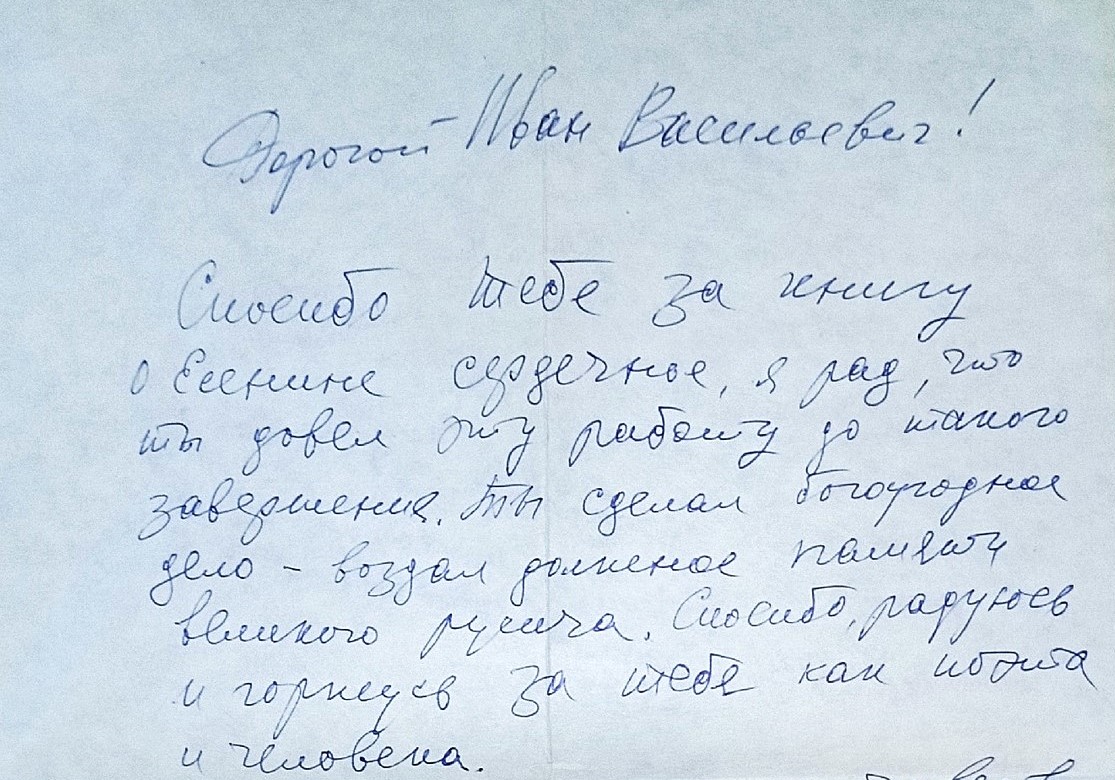 Дорогой Иван Васильевич!
Спасибо тебе за книгу
о Есенине сердечное, я рад, что
ты довел эту работу до такого
завершения. Ты сделал богоугодное
дело – воздал должное памяти
великого русича. Спасибо, радуюсь
и горжусь за тебя как поэта
и человека.